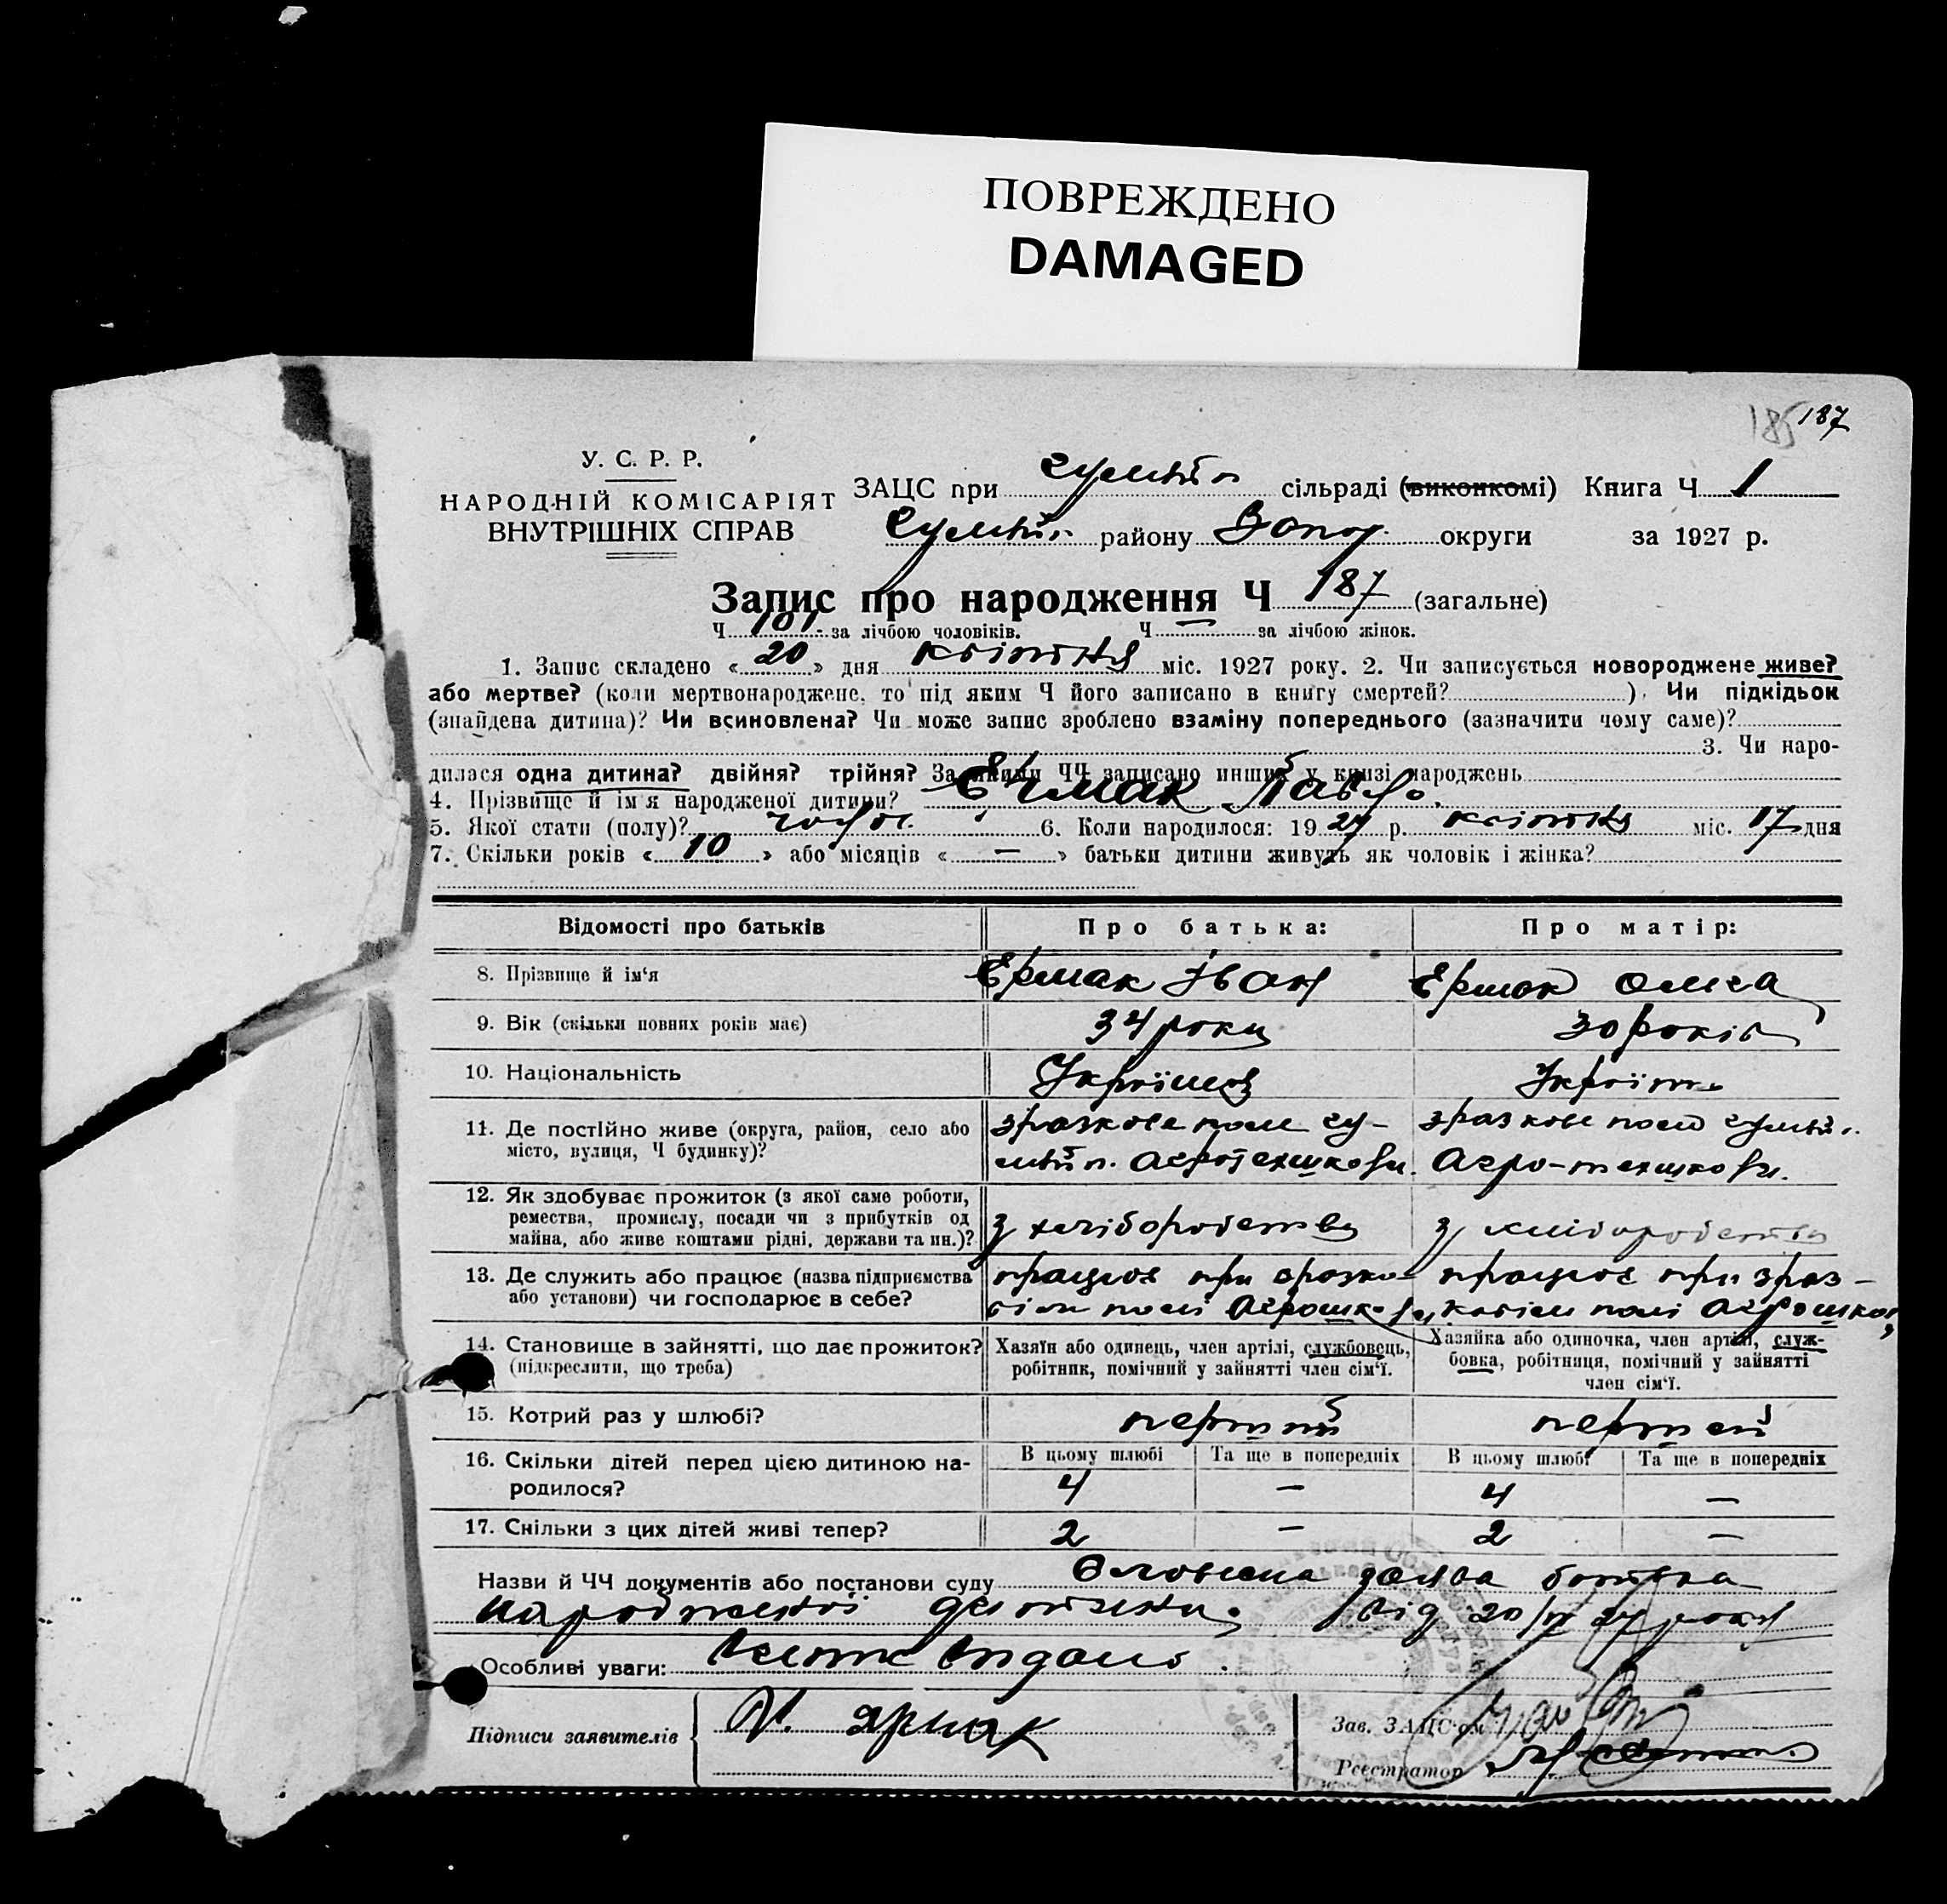 ПОВРЕЖДЕНО
DAMAGED
185 187
У. С. Р. Р.
НАРОДНІЙ КОМІСАРІЯТ
ВНУТРІШНІХ СПРАВ
ЗАЦС при сільраді (виконкомі) Книга Ч 1
району Запор. округи за 1927 р.
Запис про народження Ч 187 (загальне)
Ч 101 за лічбою чоловіків. Ч — за лічбою жінок.
1. Запис складено « 20 » дня квітня міс. 1927 року. 2. Чи записується новороджене живе?
або мертве? (коли мертвонароджене, то під яким Ч його записано в книгу смертей? ). Чи підкідьок
(знайдена дитина)? Чи всиновлена? Чи може запис зроблено взаміну попереднього (зазначити чому саме)?
3. Чи наро-
дилася одна дитина? двійня? трійня? За якими ЧЧ записано инших у книзі народжень
4. Прізвище й ім'я народженої дитини? Єрмак Павло.
5. Якої стати (полу)? чолов. 6. Коли народилося: 19 27 р. квітня міс. 17 дня
7. Скільки років « 10 » або місяців « — » батьки дитини живуть як чоловік і жінка?
Відомості про батьків Про батька: Про матір:
8. Прізвище й ім'я Єрмак Іван Єрмак Ольга
9. Вік (скільки повних років має) 34 роки 30 років
10. Національність Українець Українка
11. Де постійно живе (округа, район, село або зразкове поле гу- зразкове поле
місто, вулиця, Ч будинку)? Агротехшколи. Агро-техшколи.
12. Як здобуває прожиток (з якої саме роботи,
ремества, промислу, посади чи з прибутків од з хліборобства з хліборобства
майна, або живе коштами рідні, держави та ин.)?
13. Де служить або працює (назва підприємства працює при зразко- працює при зраз-
або установи) чи господарює в себе? вім полі Агрошколи, ковім полі Агрошколи,
14. Становище в зайнятті, що дає прожиток? Хазяїн або одинець, член артілі, службовець, Хазяйка або одиночка, член артілі, служ-
(підкреслити, що треба) робітник, помічний у зайнятті член сім'ї. бовка, робітниця, помічний у зайнятті
член сім'ї.
15. Котрий раз у шлюбі? перший перший
16. Скільки дітей перед цією дитиною на- В цьому шлюбі Та ще в попередніх В цьому шлюбі Та ще в попередніх
родилося? 4 — 4 —
17. Скільки з цих дітей живі тепер? 2 — 2 —
Назви й ЧЧ документів або постанови суду Словесна заява батька
народженої дитини. від 20/IV 27 року
Особливі уваги: видано.
Підписи заявителів И. Ярмак Зав. ЗАЦС'ом
Реєстратор